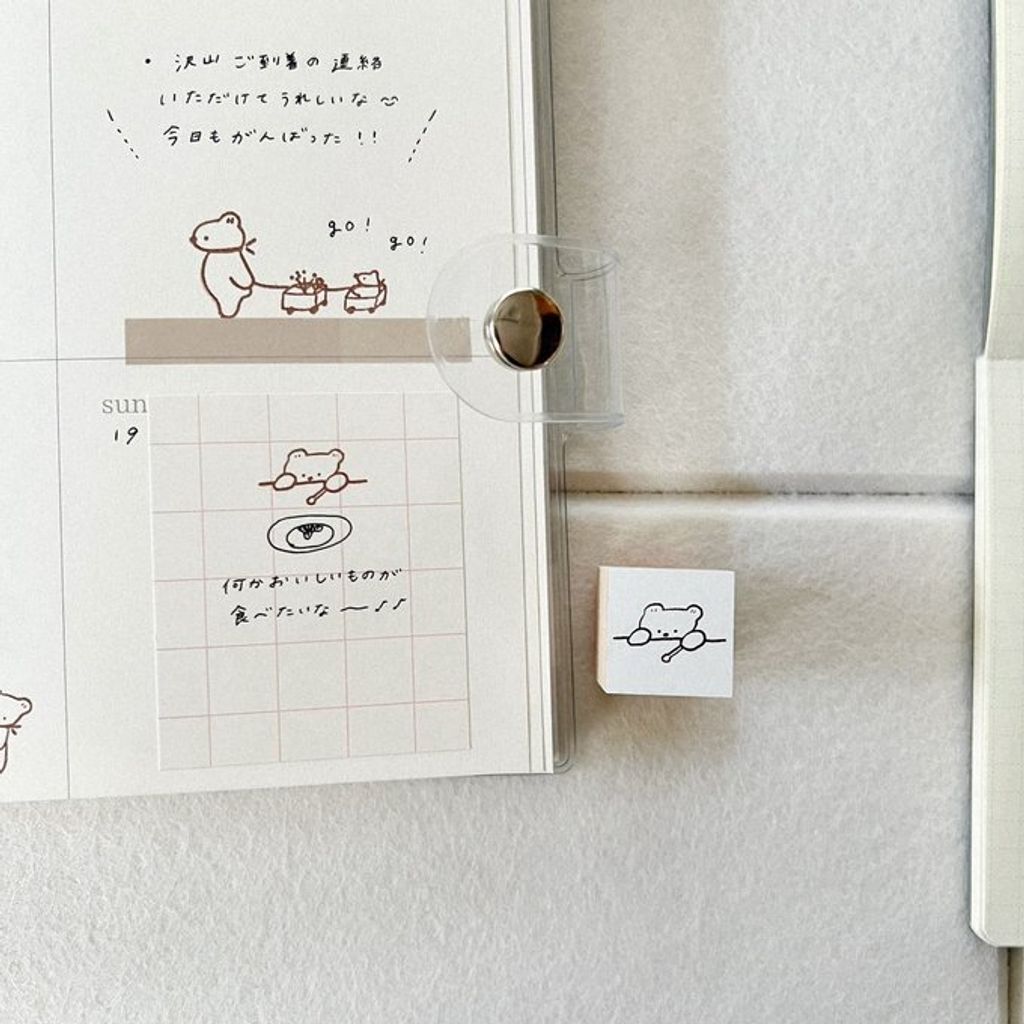 ・沢山ご到着の連絡
いただけてうれしいな
今日もがんばった!!
go!
go!
sun
19
何かおいしいものが
食べたいな〜♪♪